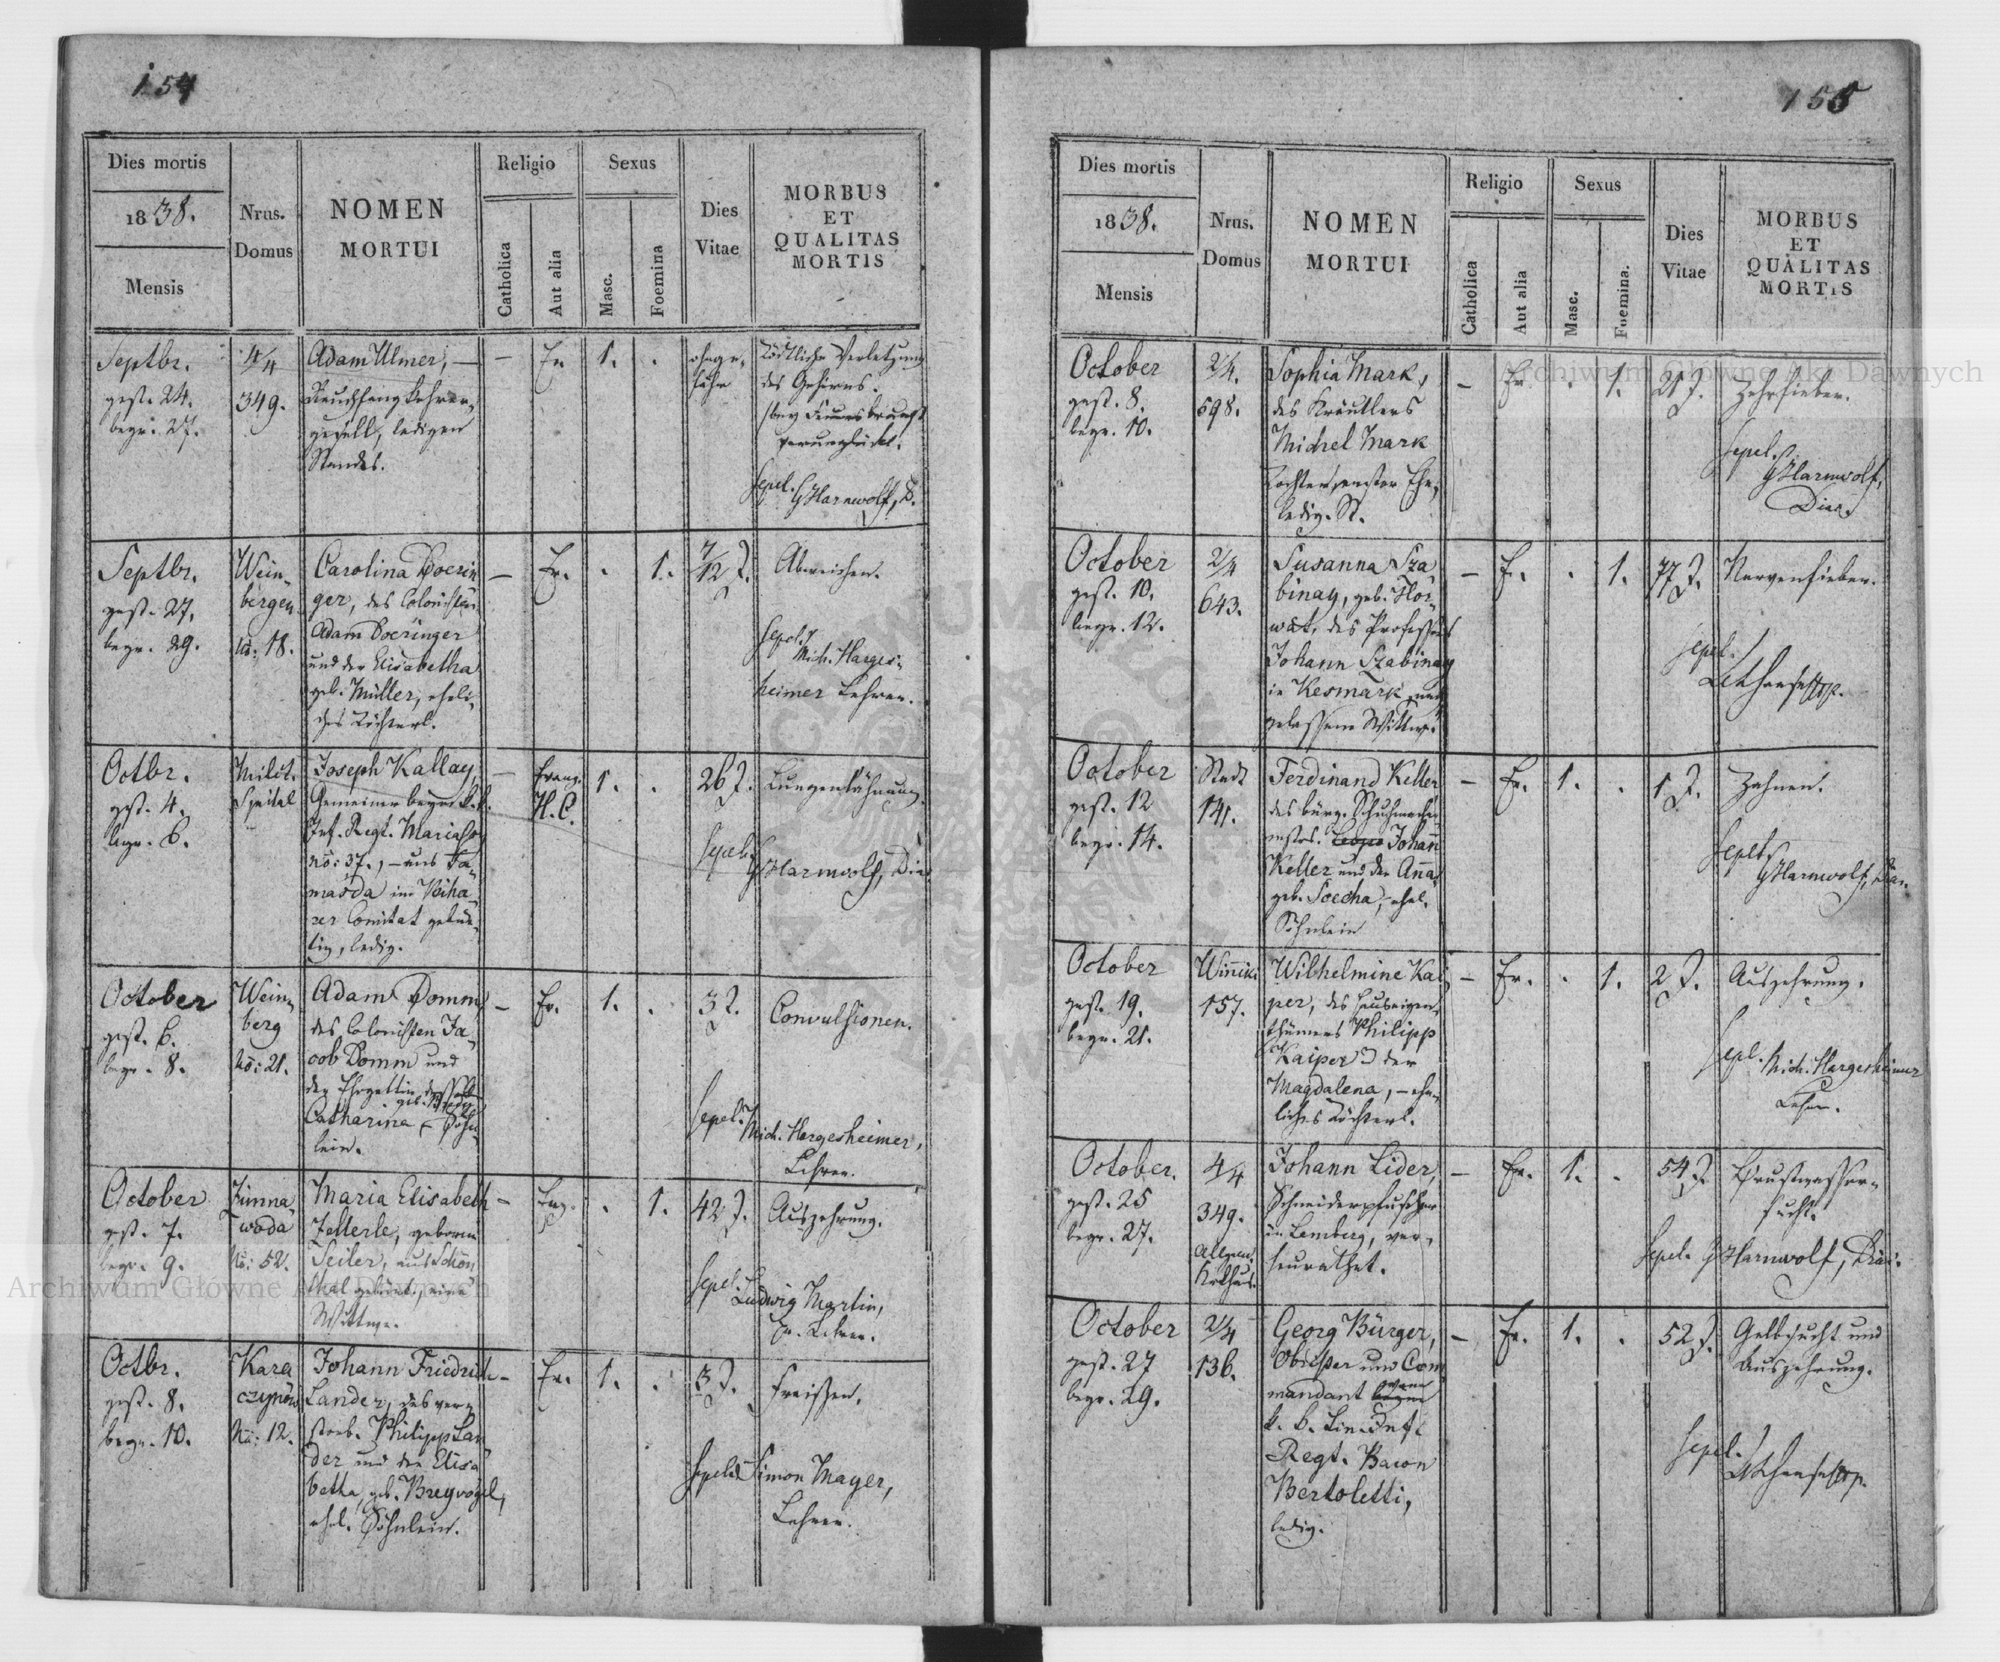 154
Dies mortis
1838.
Mensis
Nrus.
Domus
NOMEN
MORTUI
Religio
Catholica
Aut alia
Sexus
Masc.
Foemina
Dies
Vitae
MORBUS
ET
QUALITAS
MORTIS
Septbr.
gest. 24.
begr. 27.
4/4
349.
Adam Ulmer, —
Rauchfangkehrer-
gesell, ledigen
Standes.
–
Ev.
1.
.
ohnge-
fähr
Tödtliche Verletzung
des Gehirns.
bey Feuersbrunst
verunglückt.
Sepel.
GHarnwolf, D.
Septbr.
gest. 27.
begr. 29.
Wein-
bergen
No: 18.
Carolina Doerin
ger, des Colonisten
Adam Doeringer
und der Elisabetha
geb. Müller, eheli-
ches Töchterl.
–
Ev.
.
1.
7/12 J.
Abweichen.
Sepel.
Mich. Harges-
heimer Lehrer.
Octbr.
gest. 4.
begr. 6.
Milit.
Spital
Joseph Kallay,
Gemeiner beym k.k.
Inf. Regt. Mariassy
No: 37., – aus Ta-
masda im Biha-
rer Comitat gebür-
tig, ledig.
–
Evang.
H. C.
1.
.
26 J.
Lungenlähmung.
Sepel.
GHarnwolf, Diac
October
gest. 6.
begr. 8.
Wein-
berg
No: 21.
Adam Domm,
des Colonisten Ja-
cob Domm und
der Ehegattin desselben
Catharina, – Söhn-
lein.
–
Ev.
1.
.
3 J.
Convulsionen.
Sepel.
Mich. Hargesheimer,
Lehrer.
October
gest. 7.
begr. 9.
Zimna-
woda
No: 52.
Maria Elisabeth
Zellerle, geborne
Seiler, aus Schön
thal gebürt., eine
Wittwe.
–
Ev.
.
1.
42 J.
Auszehrung.
Sepel.
Ludwig Martin,
Ev. Lehrer.
Octbr.
gest. 8.
begr. 10.
Kara
czynów
No: 12.
Johann Friedrich
Lander, des ver-
storb. Philipp Lan
der und der Elisa
betha, geb. Breyvogel,
ehel. Söhnlein.
–
Ev.
1.
.
3 J.
Fraisen.
Sepel. Simon Mayer,
Lehrer.
155
Dies mortis
1838.
Mensis
Nrus.
Domus
NOMEN
MORTUI
Religio
Catholica
Aut alia
Sexus
Masc.
Foemina.
Dies
Vitae
MORBUS
ET
QUALITAS
MORTIS
October
gest. 8.
begr. 10.
2/4.
598.
Sophia Mark,
des Kräutlers
Michel Mark
Tochter, erster Ehe,
ledig. St.
–
Ev.
.
1.
21 J.
Zehrfieber.
Sepel.
GHarnwolf,
Diac.
October
gest. 10.
begr. 12.
2/4
643.
Susanna Sza
binay, geb. Hor-
wat, des Professors
Johann Szabinay
in Kesmark nach
gelassene Wittwe.
–
Ev.
.
1.
77 J.
Nervenfieber.
sepel.
October
gest. 12
begr. 14.
Stadt
141.
Ferdinand Keller
des bürg. Schuhmacher
mstrs. Johann
Keller und der Anna
geb. Soecha, ehel.
Söhnlein
–
Ev.
1.
.
1 J.
Zahnen.
Sepelt
GHarnwolf, Diac.
October
gest. 19.
begr. 21.
Winniki
157.
Wilhelmine Kai-
per, des Hauseigen-
thümers Philipp
Kaiper u der
Magdalena, – ehe-
liches Töchterl.
–
Ev.
.
1.
2 J.
Auszehrung.
Sepel. Mich. Hargesheimer
Lehrer.
October.
gest. 25
begr. 27.
4/4
349.
Allgem.
Krkhus.
Johann Lider,
Schneiderpfuscher
in Lemberg, ver-
heurathet.
–
Ev.
1.
.
54 J.
Brustwasser-
sucht.
Sepel. GHarnwolf, Diac.
October
gest. 27
begr. 29.
2/4
136.
Georg Bürger,
Obrister und Com
mandant vom
k. k. Lin. Inft
Regt. Baron
Bertoletti,
ledig.
–
Ev.
1.
.
52 J.
Gelbsucht und
Auszehrung.
sepel.
Archiwum Główne Akt Dawnych
Archiwum Główne Akt Dawnych